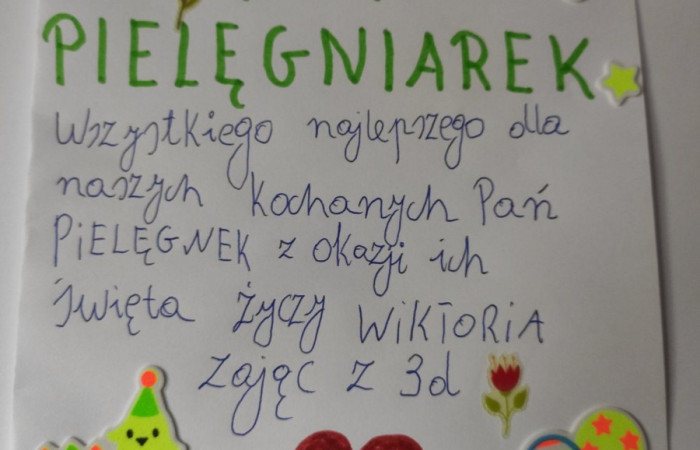 PIELĘGNIAREK
Wszystkiego najlepszego dla
naszych kochanych Pań
PIELĘGNEK z okazji ich
święta życzy WIKTORIA
Zając z 3d